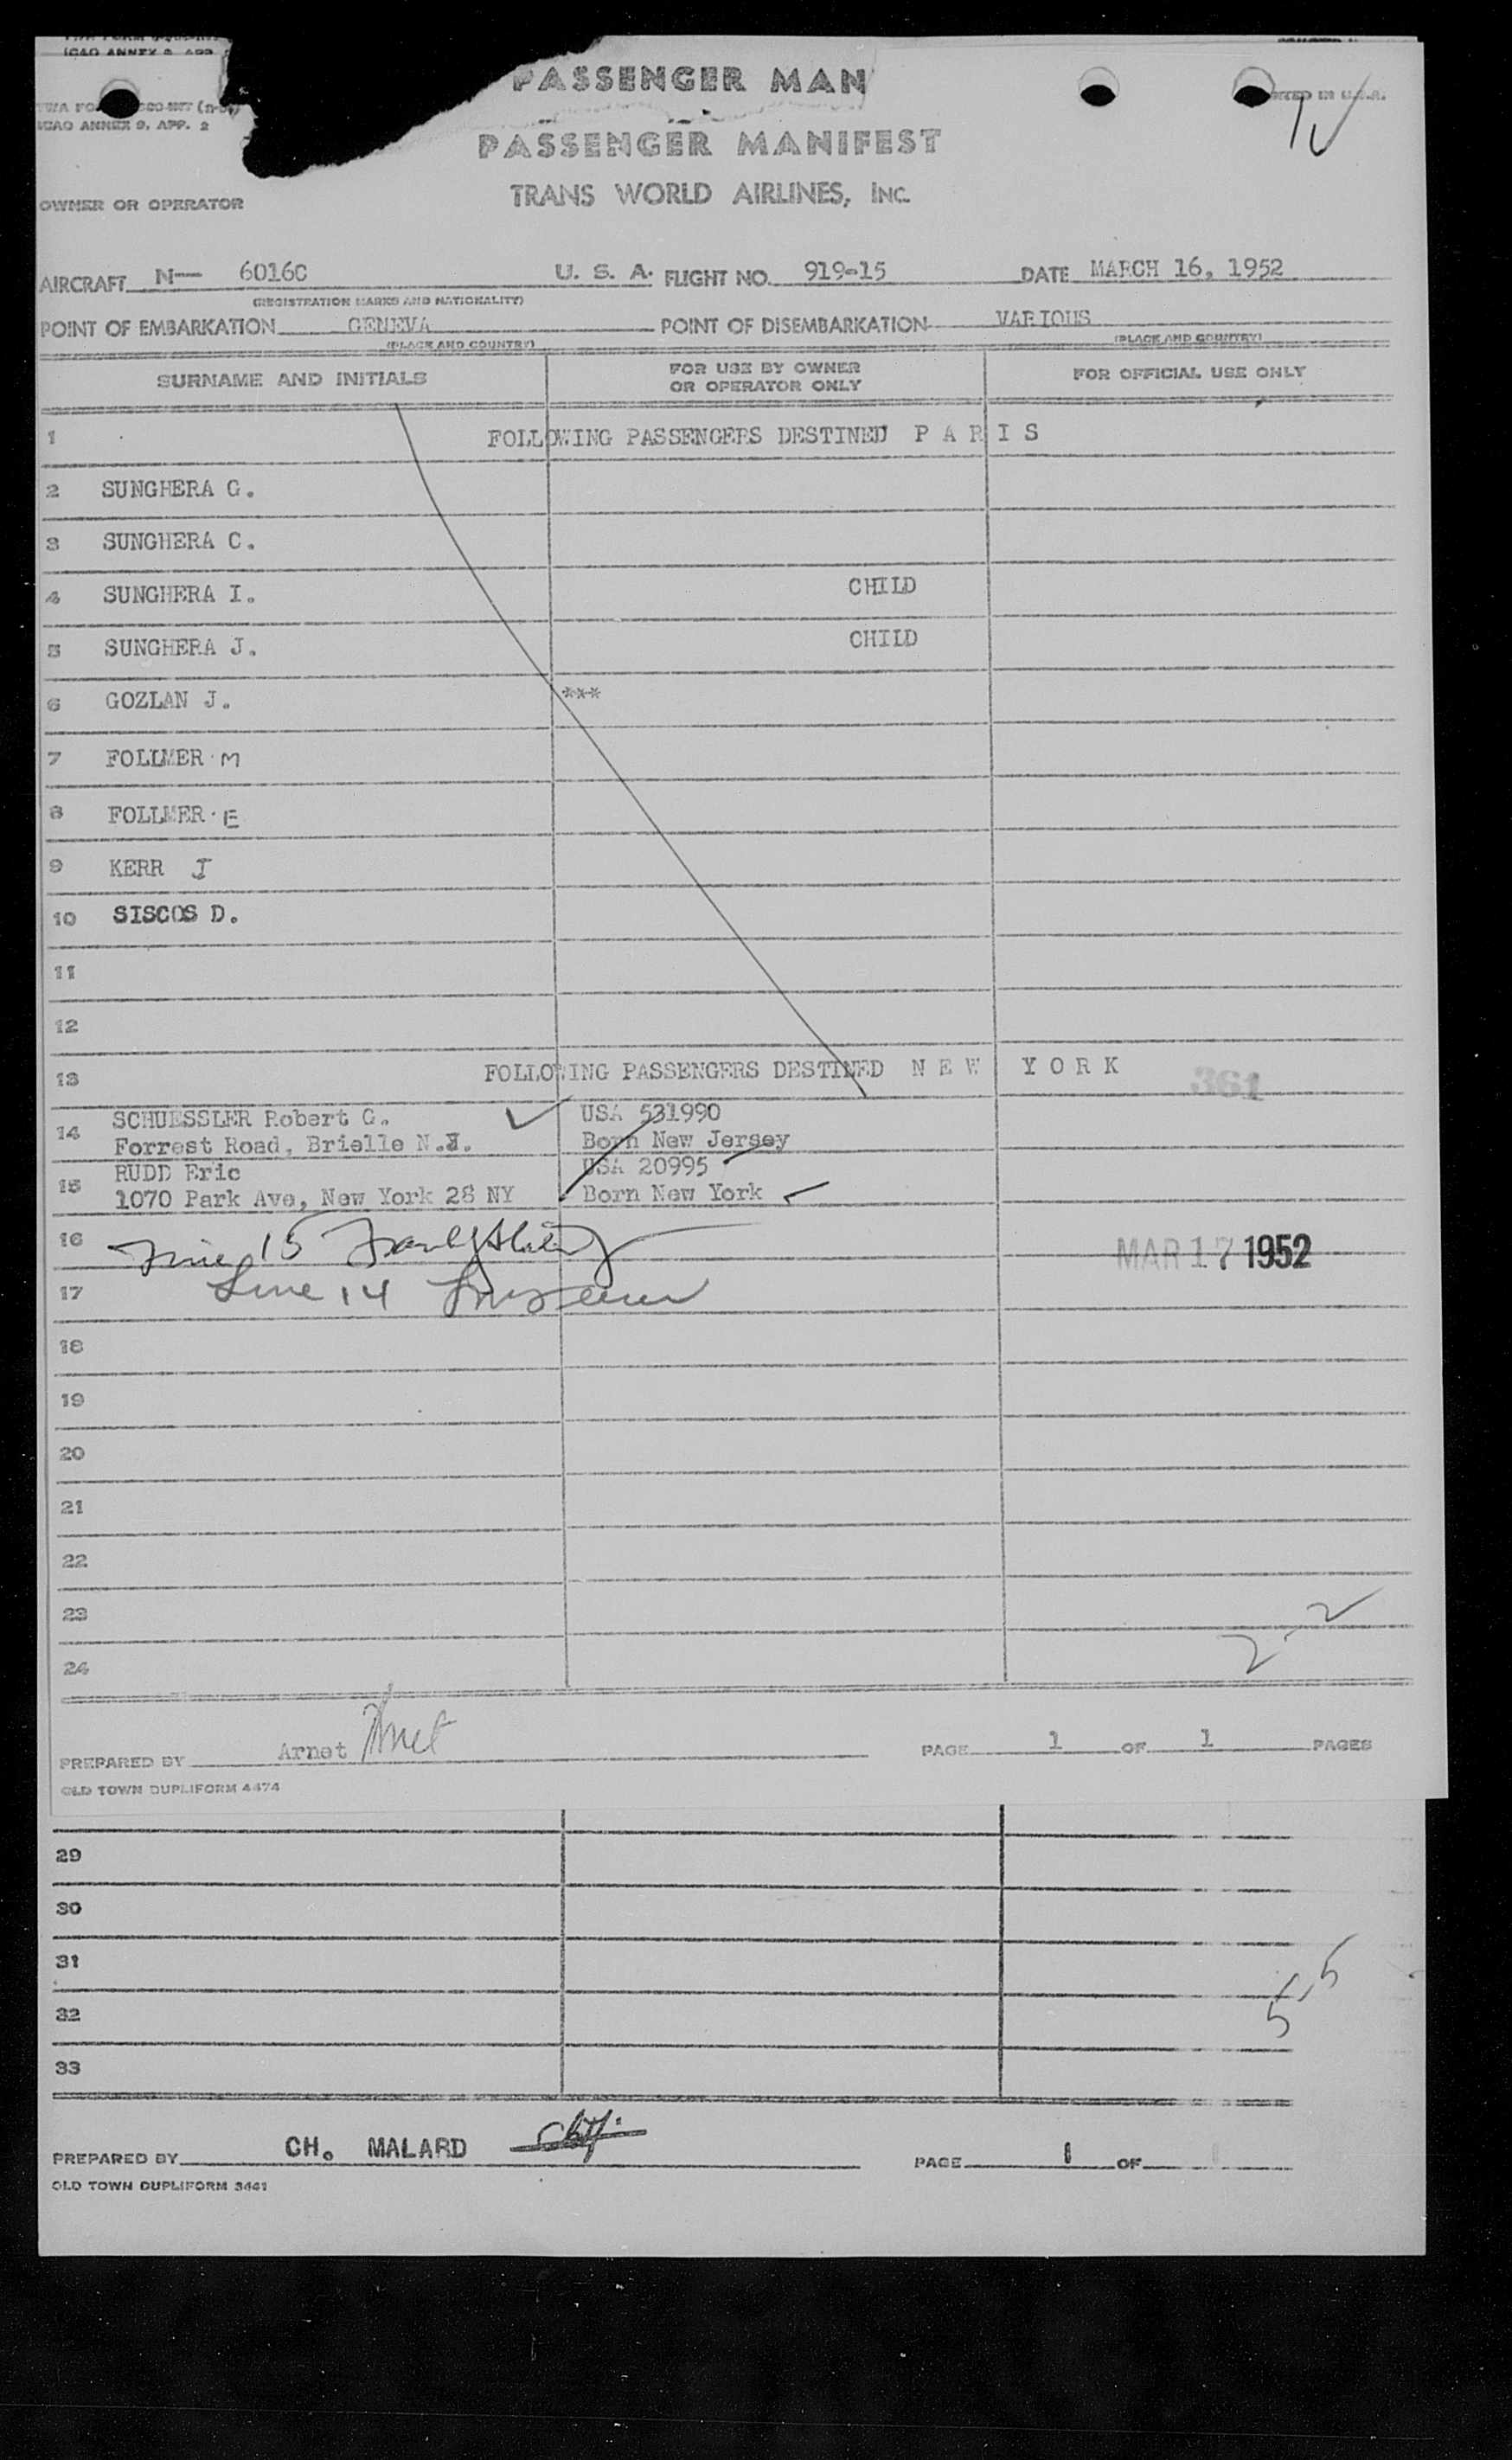 ICAO ANNEX 9 APP
PASSENGER MAN
ICAO ANNEX 9, APP. 2
PRINTED IN U.S.A.
PASSENGER MANIFEST
OWNER OR OPERATOR
TRANS WORLD AIRLINES, INC.
AIRCRAFT N— 6016C U. S. A. FLIGHT NO. 919-15 DATE MARCH 16, 1952
(REGISTRATION MARKS AND NATIONALITY)
POINT OF EMBARKATION GENEVA POINT OF DISEMBARKATION VARIOUS
(PLACE AND COUNTRY) (PLACE AND COUNTRY)
SURNAME AND INITIALS FOR USE BY OWNER OR OPERATOR ONLY FOR OFFICIAL USE ONLY
1 FOLLOWING PASSENGERS DESTINED P A R I S
2 SUNGHERA G.
3 SUNGHERA C.
4 SUNGHERA I. CHILD
5 SUNGHERA J. CHILD
6 GOZLAN J. ***
7 FOLLMER M
8 FOLLMER E
9 KERR J
10 SISCOS D.
11
12
13 FOLLOWING PASSENGERS DESTINED N E W Y O R K
361
14 SCHUESSLER Robert G. USA 531990
Forrest Road, Brielle N.J. Born New Jersey
15 RUDD Eric USA 20995
1070 Park Ave, New York 28 NY Born New York
16 15
MAR 17 1952
17 Line 14
18
19
20
21
22
23
24
2-2
PREPARED BY Arnet Arnet PAGE 1 OF 1 PAGES
OLD TOWN DUPLIFORM 4474
29
30
31
32
33
5-5
PREPARED BY CH. MALARD PAGE 1 OF 1
OLD TOWN DUPLIFORM 3441